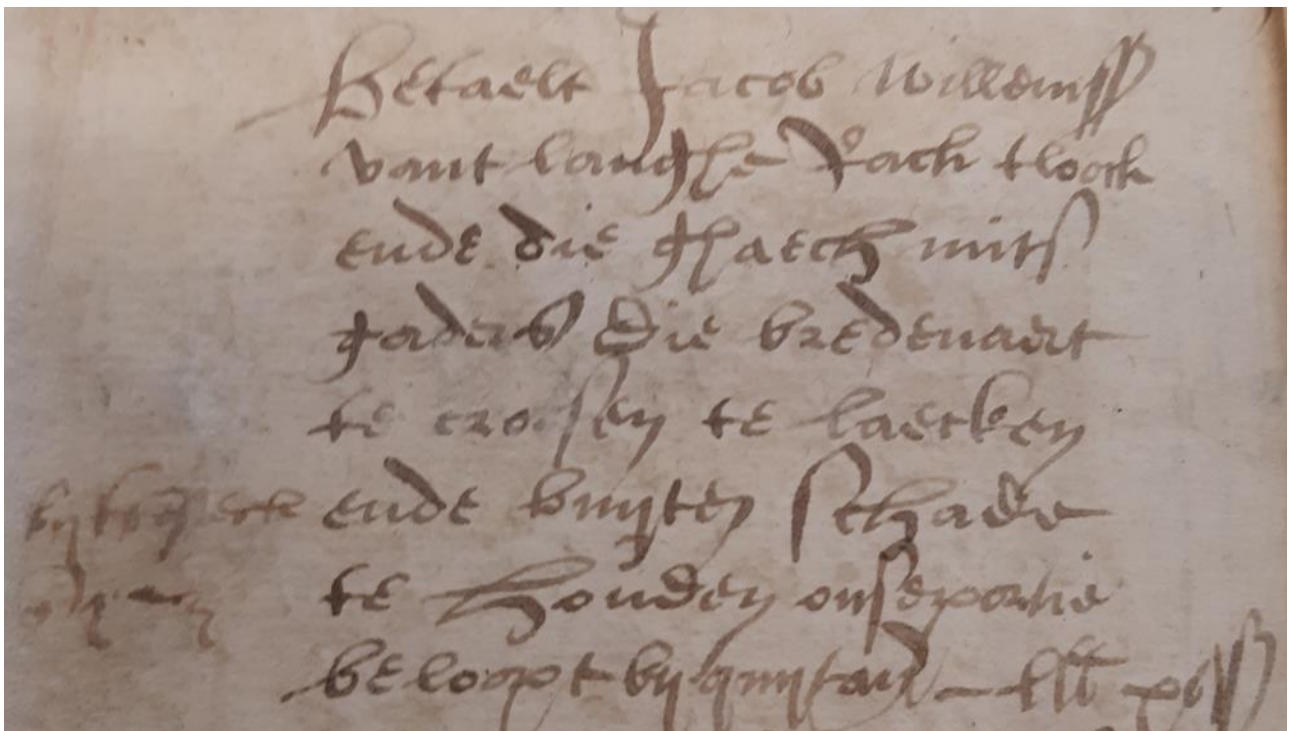 Betaelt Jacob Willemss
vant langhe Rack tloock
ende die ghaech mits
gaders die bredevaert
te croosen te laecken
ende buijten schade
te houden onse portie
beloopt bij quijtan